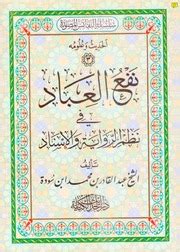 الحديث وعلومه
٣
نفع العباد
في
نظم الرواية والإسناد
تأليف
الشيخ عبد القادر بن محمد ابن سودة